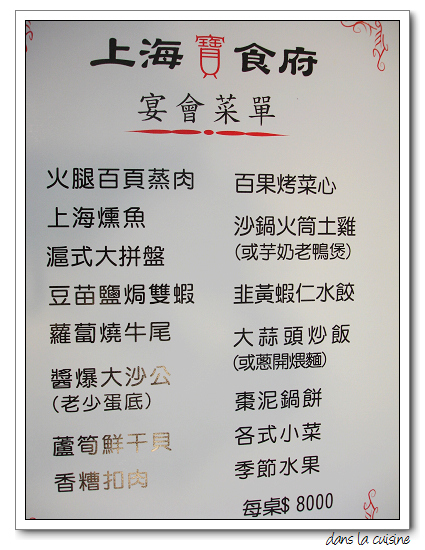 上海寶食府
宴會菜單
火腿百頁蒸肉
上海燻魚
滬式大拼盤
豆苗鹽焗雙蝦
蘿蔔燒牛尾
醬爆大沙公
(老少蛋底)
蘆筍鮮干貝
香糟扣肉
百果烤菜心
沙鍋火筒土雞
(或芋奶老鴨煲)
韭黃蝦仁水餃
大蒜頭炒飯
(或蔥開煨麵)
棗泥鍋餅
各式小菜
季節水果
每桌$ 8000
dans la cuisine